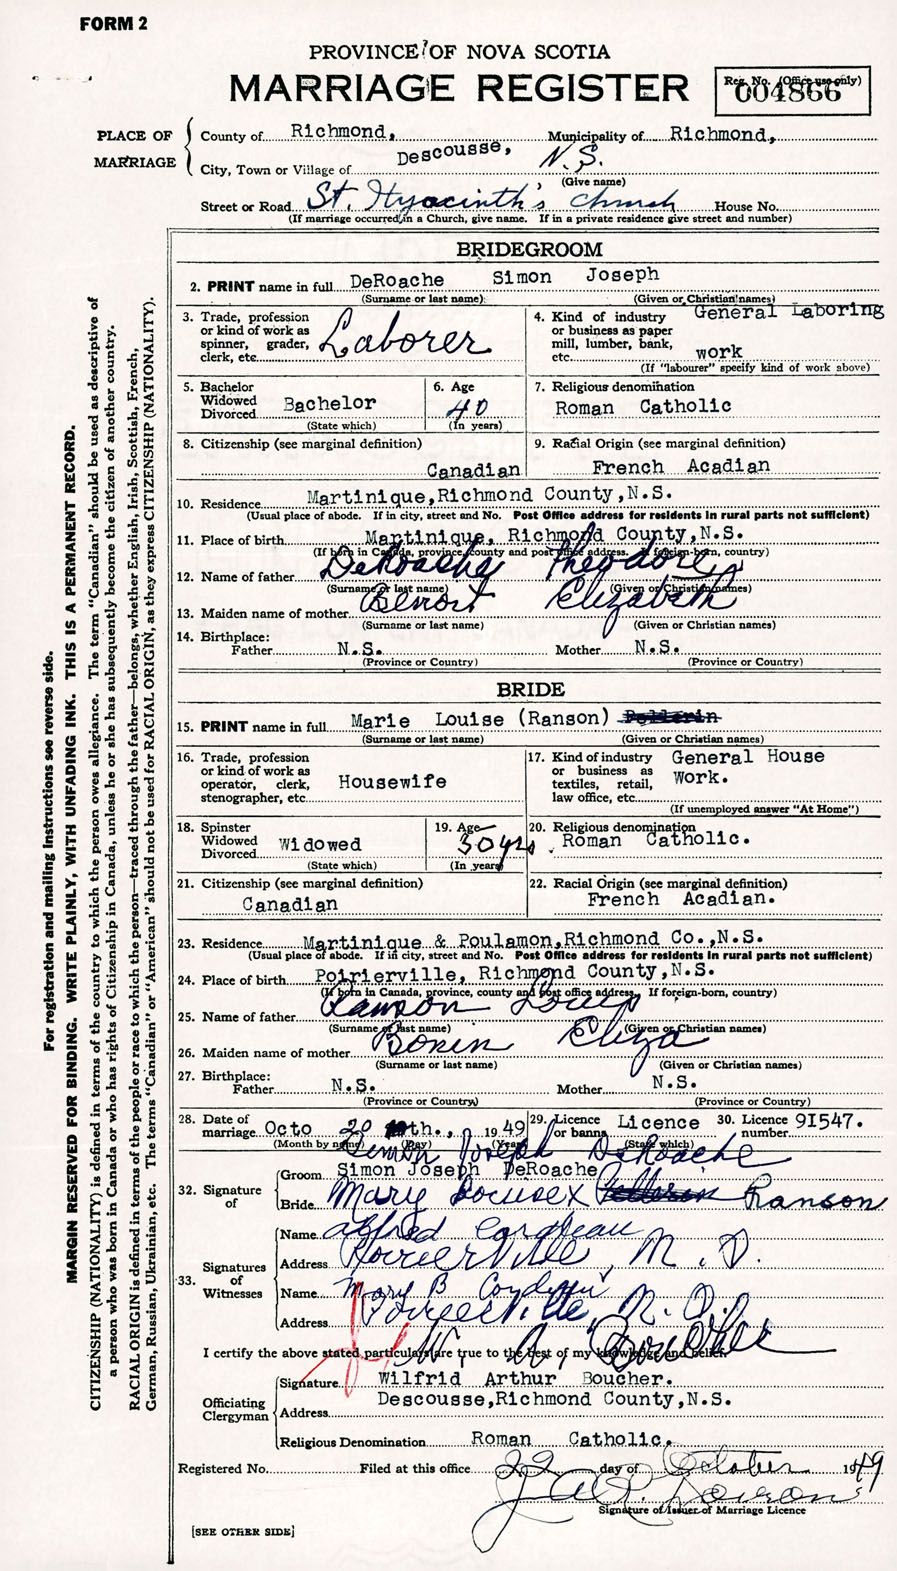 FORM 2
PROVINCE OF NOVA SCOTIA
MARRIAGE REGISTER
Reg. No. (Office use only)
004866
PLACE OF MARRIAGE
County of Richmond, Municipality of Richmond,
City, Town or Village of Descousse, N.S.
(Give name)
Street or Road St. Hyacinth's church House No.
(If marriage occurred in a Church, give name. If in a private residence give street and number)
BRIDEGROOM
2. PRINT name in full DeRoache Simon Joseph
(Surname or last name) (Given or Christian names)
3. Trade, profession or kind of work as spinner, grader, clerk, etc. Laborer
4. Kind of industry or business as paper mill, lumber, bank, etc. General Laboring work
(If "labourer" specify kind of work above)
5. Bachelor Widowed Divorced Bachelor
(State which)
6. Age 40
(In years)
7. Religious denomination
Roman Catholic
8. Citizenship (see marginal definition)
Canadian
9. Racial Origin (see marginal definition)
French Acadian
10. Residence Martinique,Richmond County,N.S.
(Usual place of abode. If in city, street and No. Post Office address for residents in rural parts not sufficient)
11. Place of birth Martinique, Richmond County,N.S.
(If born in Canada, province, county and post office address. If foreign-born, country)
12. Name of father DeRoache Theodore
(Surname or last name) (Given or Christian names)
13. Maiden name of mother Benoit Elizabeth
(Surname or last name) (Given or Christian names)
14. Birthplace:
Father N.S. Mother N.S.
(Province or Country) (Province or Country)
BRIDE
15. PRINT name in full Marie Louise (Ranson)
(Surname or last name) (Given or Christian names)
16. Trade, profession or kind of work as operator, clerk, stenographer, etc. Housewife
17. Kind of industry or business as textiles, retail, law office, etc. General House Work.
(If unemployed answer "At Home")
18. Spinster Widowed Divorced Widowed
(State which)
19. Age 30 yrs
(In years)
20. Religious denomination
Roman Catholic.
21. Citizenship (see marginal definition)
Canadian
22. Racial Origin (see marginal definition)
French Acadian.
23. Residence Martinique & Poulamon,Richmond Co.,N.S.
(Usual place of abode. If in city, street and No. Post Office address for residents in rural parts not sufficient)
24. Place of birth Poirierville, Richmond County,N.S.
(If born in Canada, province, county and post office address. If foreign-born, country)
25. Name of father Ranson Louis
(Surname or last name) (Given or Christian names)
26. Maiden name of mother Bonin Eliza
(Surname or last name) (Given or Christian names)
27. Birthplace:
Father N.S. Mother N.S.
(Province or Country) (Province or Country)
28. Date of marriage Octo 20 th., 1949
(Month by name) (Day) (Year)
29. Licence or banns Licence
(State which)
30. Licence number 91547.
Simon Joseph DeRoache
32. Signature of
Groom Simon Joseph DeRoache
Bride Mary Ranson
33. Signatures of Witnesses
Name Alfred
Address
Name Mary B
Address
I certify the above stated particulars are true to the best of my knowledge and belief.
W. A. Boucher
Officiating Clergyman
Signature Wilfrid Arthur Boucher.
Address Descousse,Richmond County,N.S.
Religious Denomination Roman Catholic.
Registered No. Filed at this office 22 day of October 1949
Signature of Issuer of Marriage Licence
[SEE OTHER SIDE]
For registration and mailing instructions see reverse side.
MARGIN RESERVED FOR BINDING. WRITE PLAINLY, WITH UNFADING INK. THIS IS A PERMANENT RECORD.
CITIZENSHIP (NATIONALITY) is defined in terms of the country to which the person owes allegiance. The term "Canadian" should be used as descriptive of
a person who was born in Canada or who has rights of Citizenship in Canada, unless he or she has subsequently become the citizen of another country.
RACIAL ORIGIN is defined in terms of the people or race to which the person—traced through the father—belongs, whether English, Irish, Scottish, French,
German, Russian, Ukrainian, etc. The terms "Canadian" or "American" should not be used for RACIAL ORIGIN, as they express CITIZENSHIP (NATIONALITY).